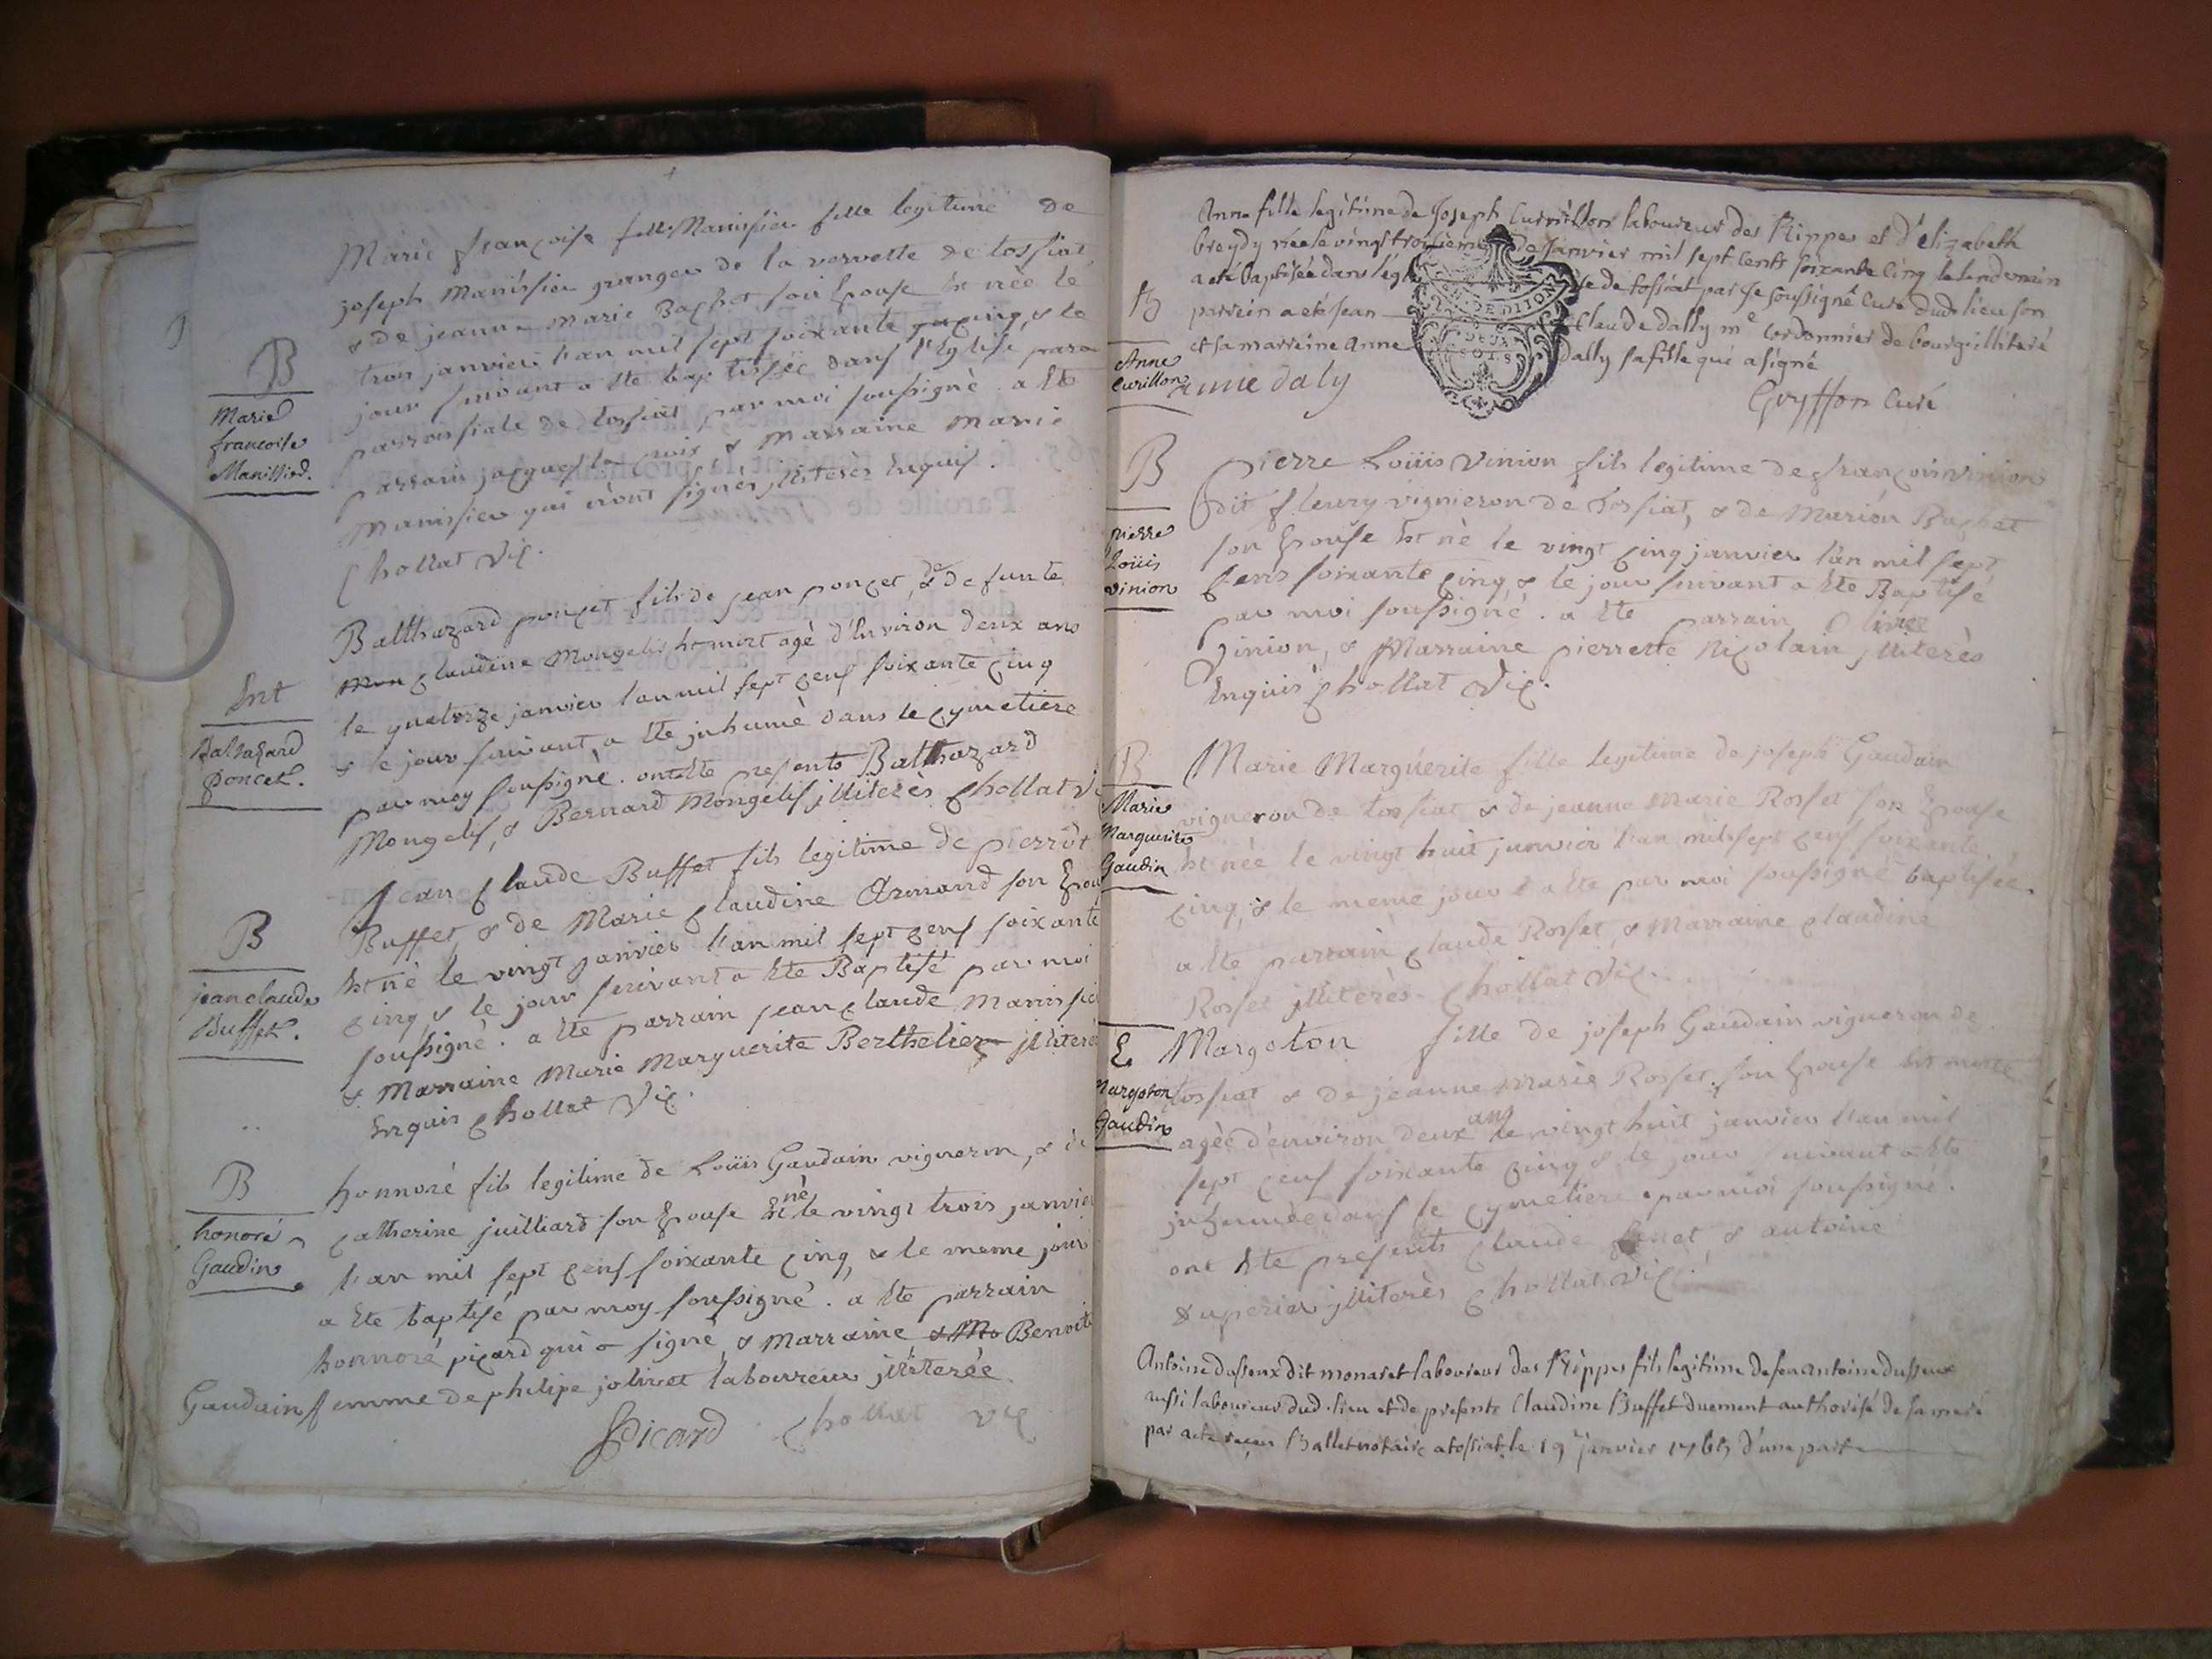 B
Marie
francoise
Manissier.
Marie françoise Manissier fille legitime de
joseph Manissier granger de la vervette de tossiat
& de jeanne Marie Bachet son Epouse Est née le
trois janvier l'an mil sept soixante cinq, & le
jour suivant a Ete baptisée dans l'Eglise
parroissiale de tossiat, par moi soussigné. a Ete
parrain jacques la croix & Marraine Marie
Manissier qui n'ont signés jlliterès Enquis.
Chollat Vic.
Ent
Baltazard
Poncet.
Balthazard poncet fils de jean poncet, & de defunte
claudine Mongelis Est mort agé d'Environ deux ans
le quatorze janvier l'an mil sept cens soixante cinq
& le jour suivant, a Ete jnhumé dans le cymetiere
par moy soussigné. ont Ete presents Balthazard
Mongelis, & Bernard Mongelis jlliterès Chollat
B
jean claude
Buffet.
Jean Claude Buffet fils legitime de pierrot
Buffet, & de Marie claudine Armand son
Est né le vingt janvier l'an mil sept cens soixante
cinq & le jour suivant a Ete Baptisé par moi
soussigné. a Ete parrain jean claude
& Marraine Marie Marguerite Berthelier
Enquis Chollat Vic.
B
honoré
Gaudin
honnoré fils legitime de Loüis Gaudain vigneron, &
catherine juilliard son Epouse Est né le vingt trois
l'an mil sept cens soixante cinq, & le meme jour
a Ete baptisé par moy soussigné. a Ete parrain
honnoré picard qui a signé, & Marraine
Gaudain femme de philipe jolivet laboureur jlliterée
Picard Chollat vic
B
Anne
Curillon
Anne fille legitime de Joseph Curillon laboureur des Rippes et d'élizabeth
breydy née le vingt troisieme de Janvier mil sept cents soixante cinq le lendemain
a eté baptisée dans de tossiat par je soussigné Curé dud lieu son
parrein a eté Jean Claude dally me cordonnier de bourg illiteré
et sa marreine Anne Dally sa fille qui a signé
Anne daly
Gryffon Curé
B
pierre
Loüis
Vinion
Pierre Loüis Vinion fils legitime de françois Vinion
dit fleury vigneron de tossiat, & de Marion Bachet
son Epouse Est né le vingt cinq janvier l'an mil sept
cens soixante cinq & le jour suivant a Ete Baptisé
par moi soussigné. a Ete parrain
Vinion, & Marraine pierrette Nicolain jlliterès
Enquis Chollat Vic.
B
Marie
Marguerite
Gaudin
Marie Marguerite fille legitime de joseph Gaudain
vigneron de tossiat & de jeanne Marie Rosset son Epouse
Est née le vingt huit janvier l'an mil sept cens soixante
cinq, & le meme jour a Ete par moi soussigné baptisée.
a Ete parrain claude Rosset, & Marraine claudine
Rosset jlliterès. Chollat Vic.
E
Margoton
Gaudin
Margoton fille de joseph Gaudain vigneron de
tossiat & de jeanne Marie Rosset son Epouse Est morte
agée d'environ deux ans le vingt huit janvier l'an mil
sept cens soixante cinq & le jour suivant a Ete
jnhumée dans le cymetiere par moi soussigné.
ont Ete presents claude & antoine
jlliterès Chollat Vic.
Antoine dusseux dit monaret laboureur des Rippes fils legitime de feu antoine dusseux
aussi laboureur dud. lieu et de presente Claudine Buffet duement authorisé de sa mere
par acte reçu Ballet notaire a tossiat le 19 janvier 1765 d'une part